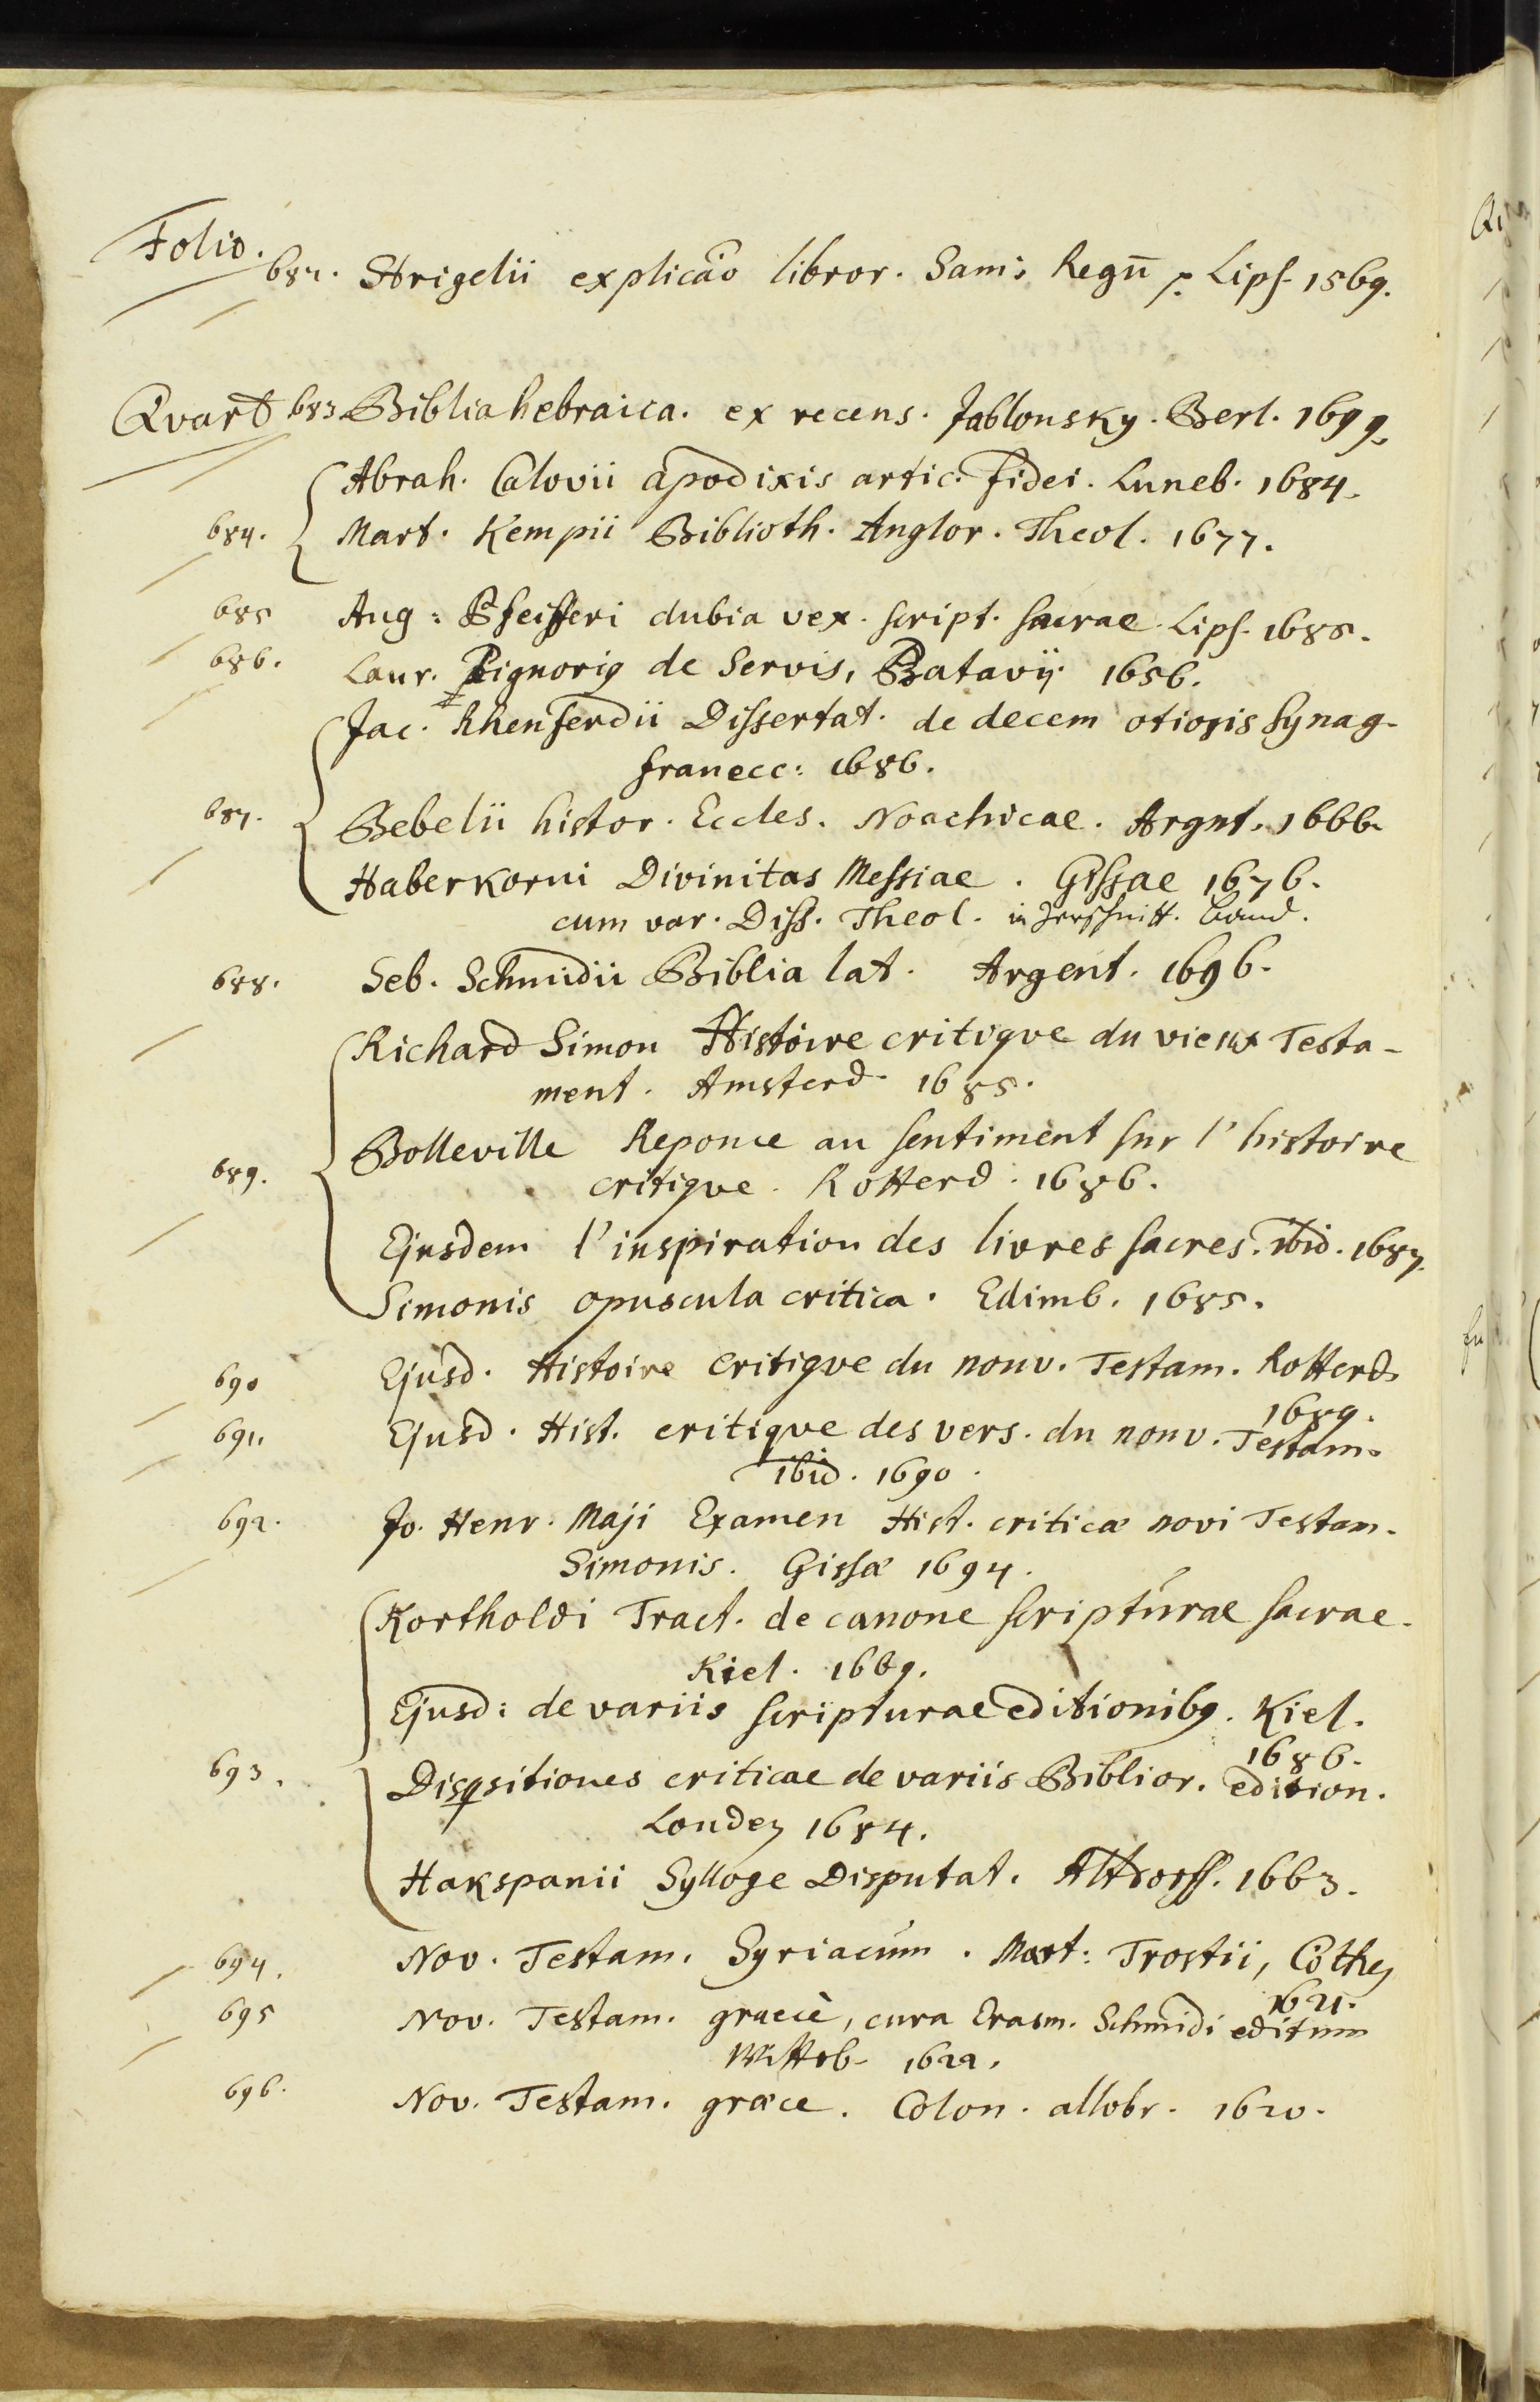 Folio.
682. Strigelii explicãо libror. Sam: Regū p. Lips. 1569.
Qvart 683 Biblia hebraica. ex recens. Jablonsky. Berl. 1699.
Abrah. Calovii apodixis artic. fidei. Luneb. 1684.
684. Mart. Kempii Biblioth. Anglor. Theol. 1677.
685 Aug: Pfeifferi dubia vex. script. sacrae. Lips. 1685.
686. Laur. Pignorig de Servis, Batavij. 1656.
Jac. Rhenferdii Dissertat. de decem otiosis Synag-
franecc: 1686.
687. Bebelii histor. Eccles. Noachicae. Argnt. 1666.
Haberkorni Divinitas Messiae. Gissae 1676.
cum var. Diss. Theol. in Band.
688. Seb. Schmidii Biblia lat. Argent. 1696.
Richard Simon Histoire critiqve du vieux Testa-
ment. Amsterd. 1685.
Bolleville Reponce au sentiment sur l'histoire
689. critiqve. Rotterd. 1686.
Ejusdem l'inspiration des livres sacres. ibid. 1687.
Simonis opuscula critica. Edimb. 1685.
690 Ejusd. Histoire critiqve du nouv. Testam. Rotterd.
1689.
691. Ejusd. Hist. critiqve des vers. du nouv. Testam.
ibid. 1690.
692. Jo. Henr. Maji Examen Hist. criticæ novi Testam.
Simonis. Gissæ 1694.
Kortholdi Tract. de canone scripturae sacrae.
Kiel. 1669.
Ejusd: de variis scripturae editionibg. Kiel.
1686.
693. Disqsitiones criticae de variis Biblior. edition.
Londen 1684.
Hakspanii Sylloge Disputat. Altdorff. 1663.
694. Nov. Testam. Syriacum. Mart: Trostii, Cöthen
1621.
695 Nov. Testam. graecè, cura Erasm. Schmidi editum
Witteb. 1622.
696. Nov. Testam. græce. Colon. allobr. 1620.